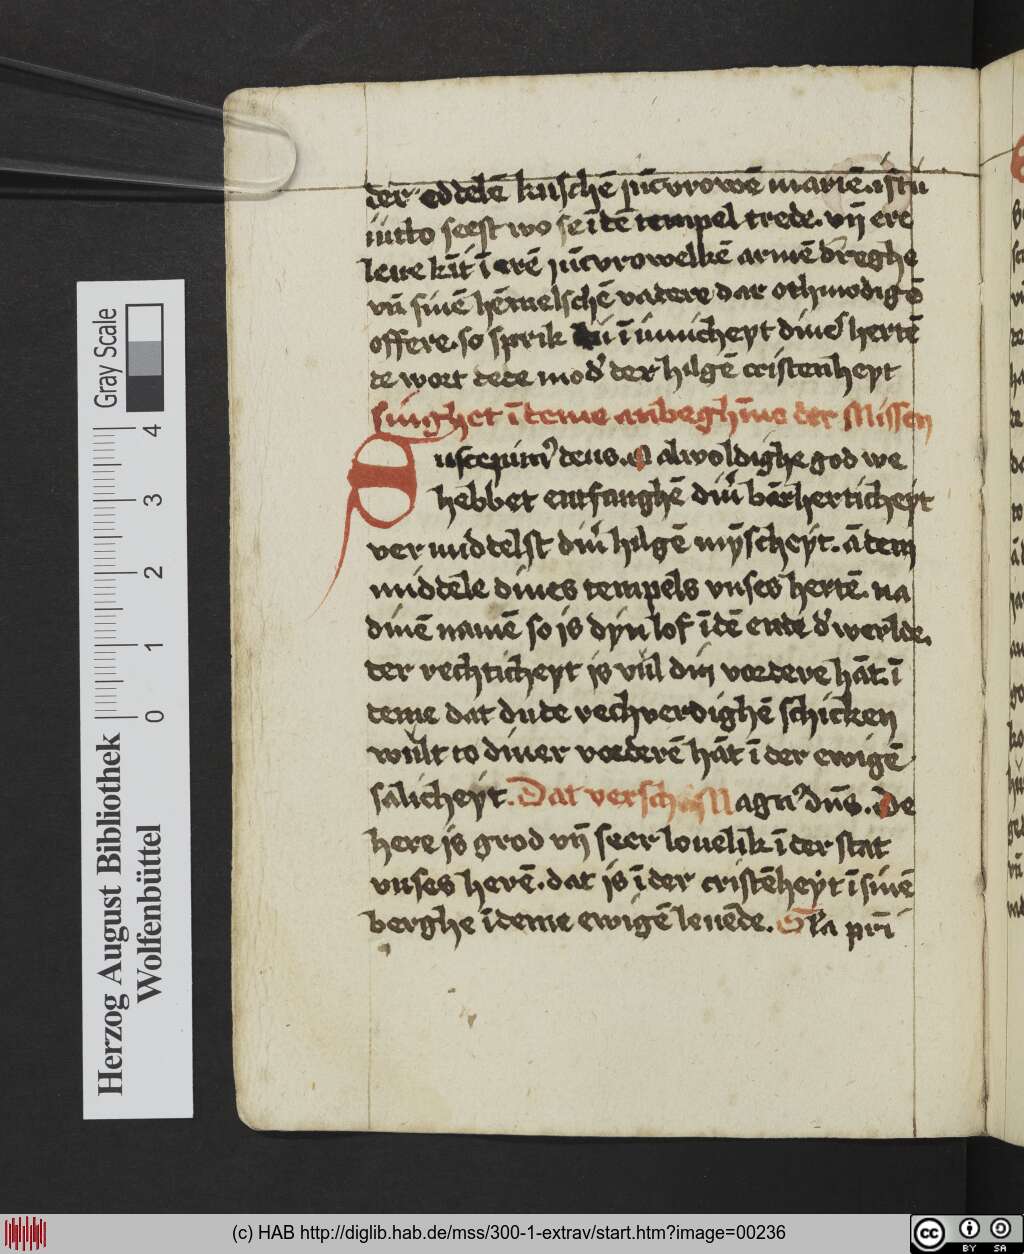 der eddelē kuschē jūcvrowē mariē. istu
iutto seest wo se ī dē tempel trede. vn̄ ere
leue kīt ī erē jūcvrowelkē armē dreghe
vn̄ sinē hēmelschē vadere dar othmodigē
offere. so sprik ī innicheyt diner hertē
de wort dede mod' der hilgē cristenheyt
singhet ī deme anbeghīne der Missen
Suscepim' deus. O alwoldighe god we
hebbet entfanghē din' bārherticheyt
ver middelst din' hilgē mȳscheyt. ā dem
middele dines tempels vnses hertē. na
dinē namē so is dyn lof ī dē ende d' werlde.
der rechticheyt is vul din vordere hāt. ī
deme dat du de rechverdighē schicken
wult to diner vorderē hāt ī der ewigē
salicheyt. Dat versch Magn' dn̄s. De
here is grod vn̄ seer louelik ī der stat
vnses herē. dat is ī der cristēheyt ī sinē
berghe ī deme ewigē leuēde. Gl'a pr̄i
Gray Scale
4
3
2
1
0
Herzog August Bibliothek
Wolfenbüttel
(c) HAB http://diglib.hab.de/mss/300-1-extrav/start.htm?image=00236
cc
BY SA